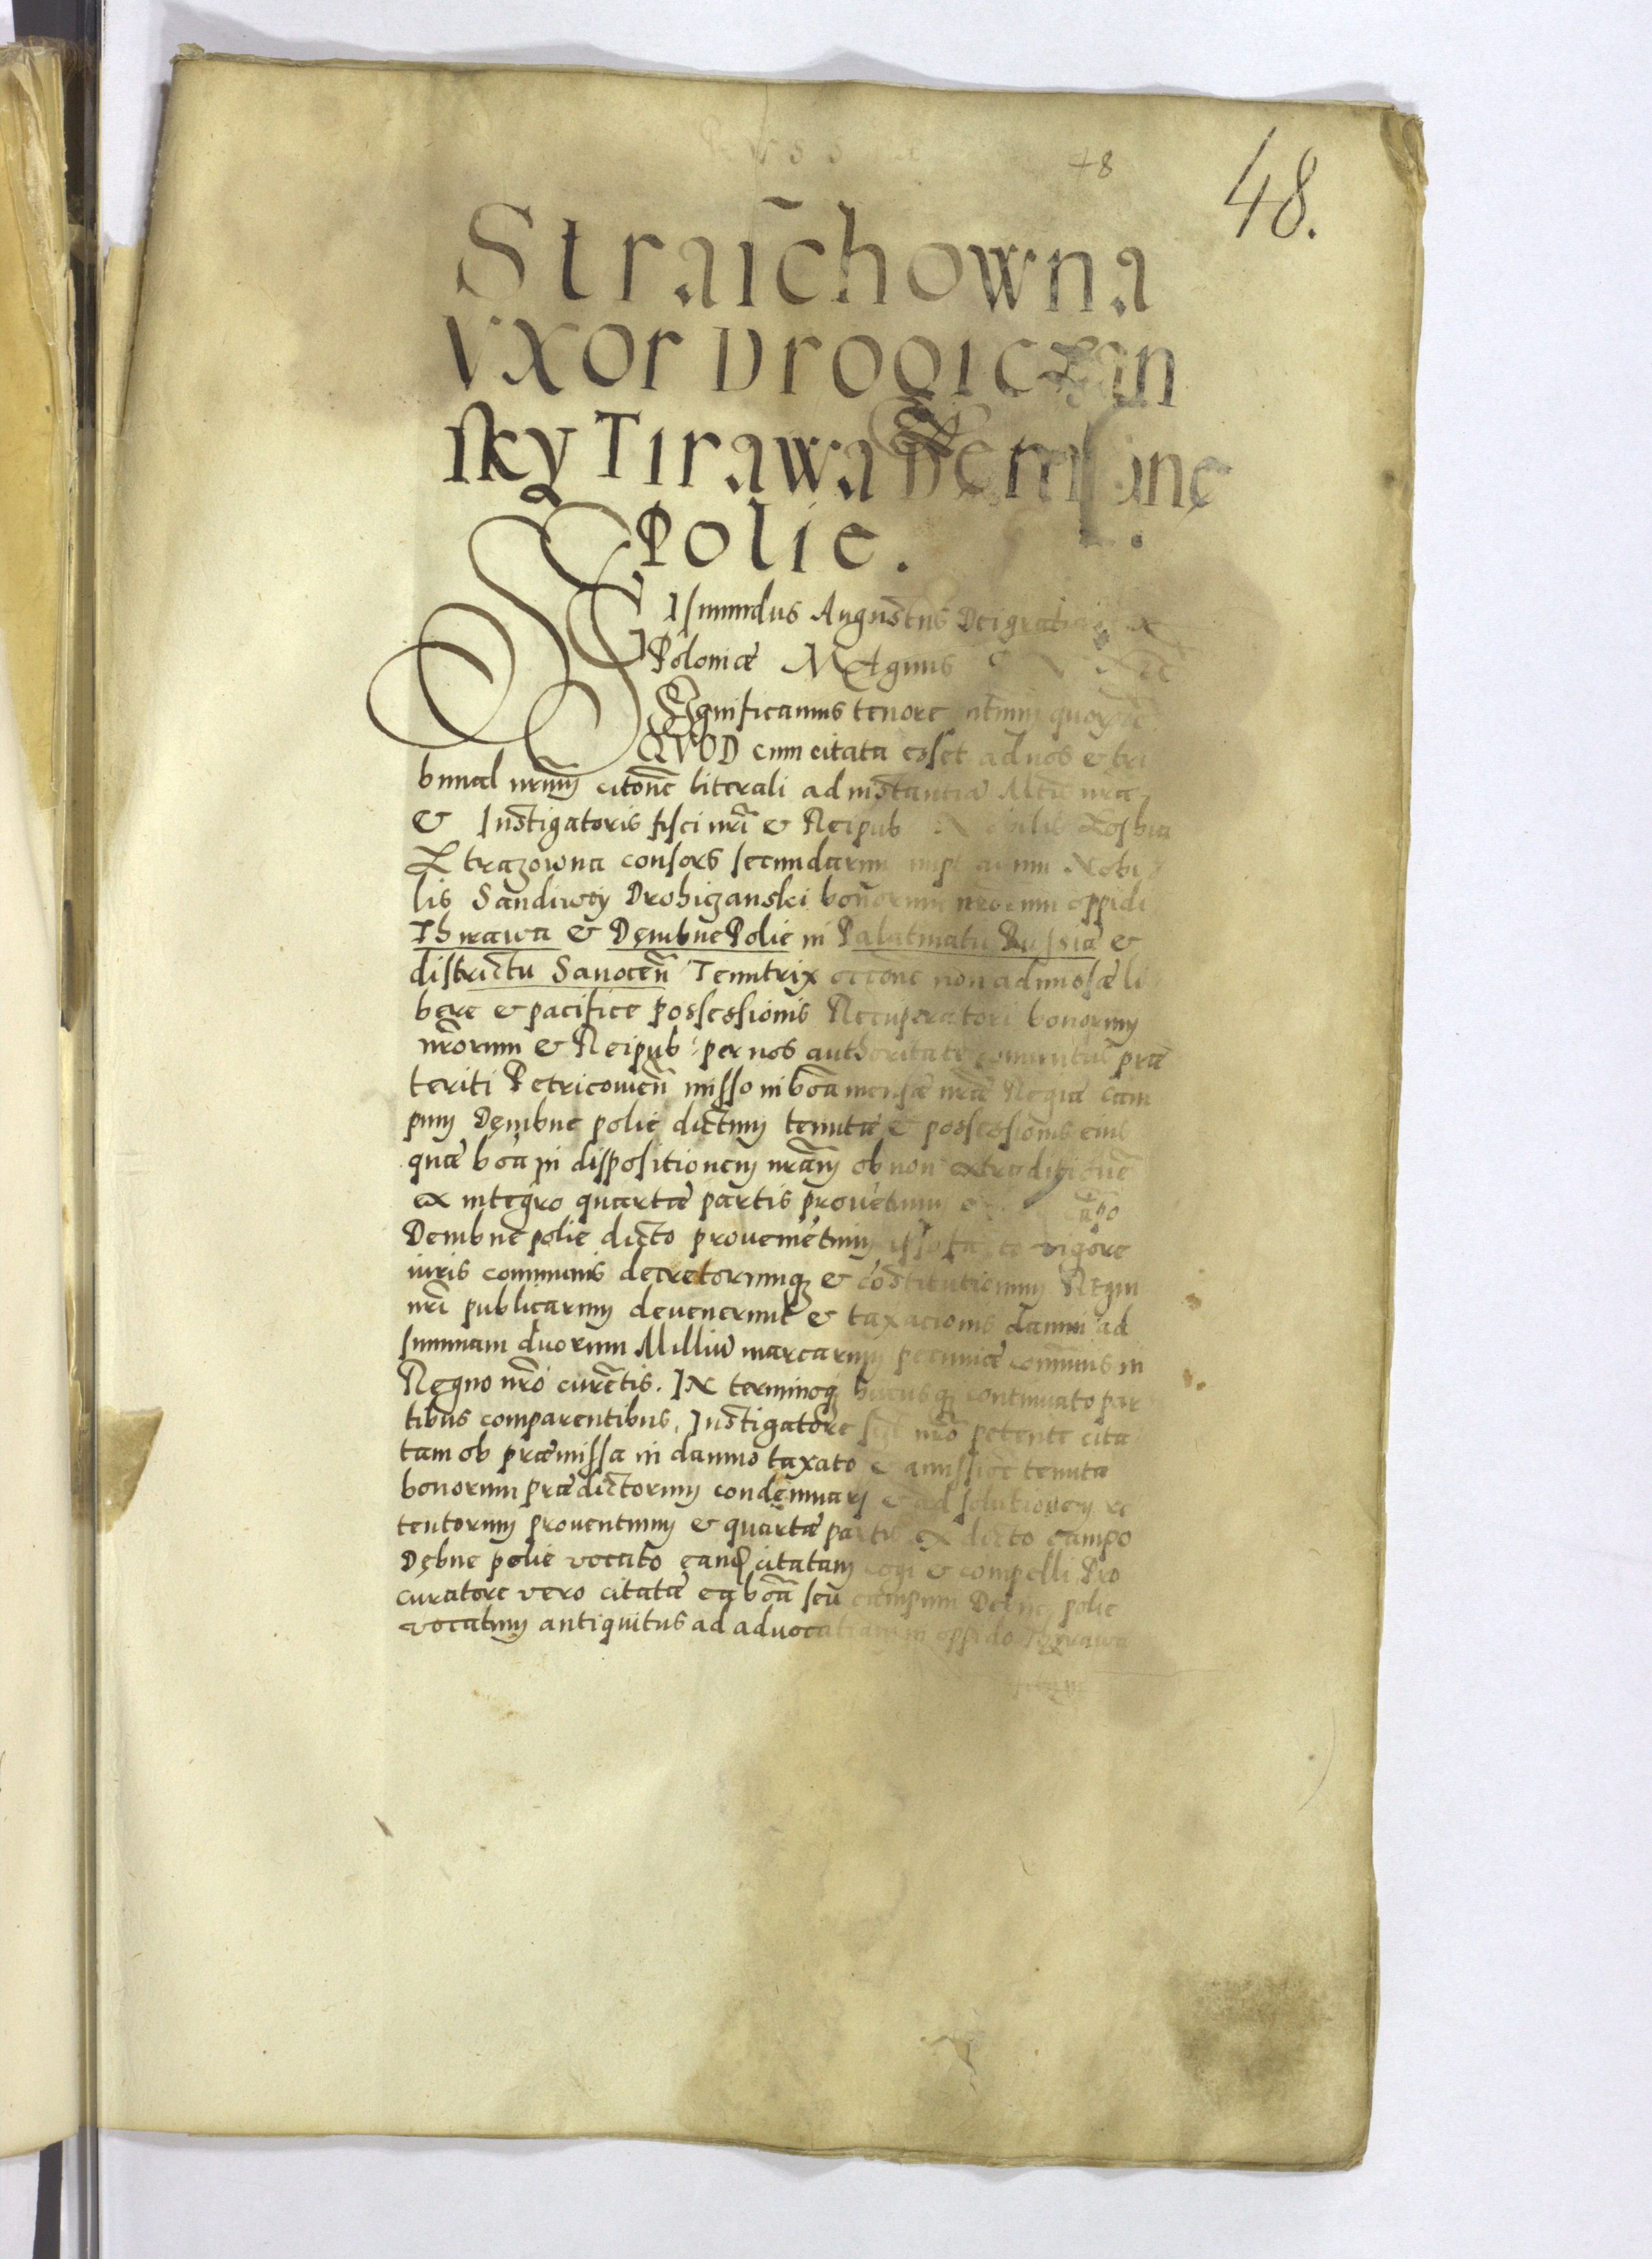 48
48.
Straichowna
VXor Drogiczan
sky Tirawa Dembne
Polie.
SGIsmundus Augustus Dei gratia
Poloniæ MAgnus
SIgnificamus tenore quor
QVOD cum citata esset ad nos & tri
bunal nrum citone literali ad instantiā nræ
& Instigatoris fisci nri & Reipub Nobilis Zophia
Strazowna consors secundarum Nobi
lis Sandiwoy Drohiczanski bonorum nrorum oppidi
Thirawa & Dembne Polie in Palatinatu Russiæ &
districtu Sanocen̄ Tenutrix non admissæ li
bere & pacifice possessionis Recuperatori bonorum
nrorum & Reipub: per nos authoritate præ
teriti Petricouien̄ misso in boa mensæ nræ Regiæ cam
pum Dembne polie dictum tenutæ & possessionis eius
quæ boa in dispositionem nram ob non
ex integro quartæ partis prouetuum cāpo
Dembne polie dicto prouenietium ipso facto vigore
iuris communis decretorumq & costitutionum Regni
nri publicarum deuenerunt & taxationis damni ad
summam duorum Milliū marcarum pecuniæ communis in
Regno nro curetis. IN terminoq hucusq continuato par
tibus comparentibus, Instigatore nro petente cita
tam ob præmissa in damno taxato & amissioe tenutæ
bonorum prædictorum condemnari & ad solutionem re
tentorum prouentuum & quartæ partis ex dicto campo
Debne polie vocato eand citatam cogi & compelli Pro
curatore vero citatæ ea boa seu campum polie
vocatum antiquitus ad aduocatiam in oppido Thirawa